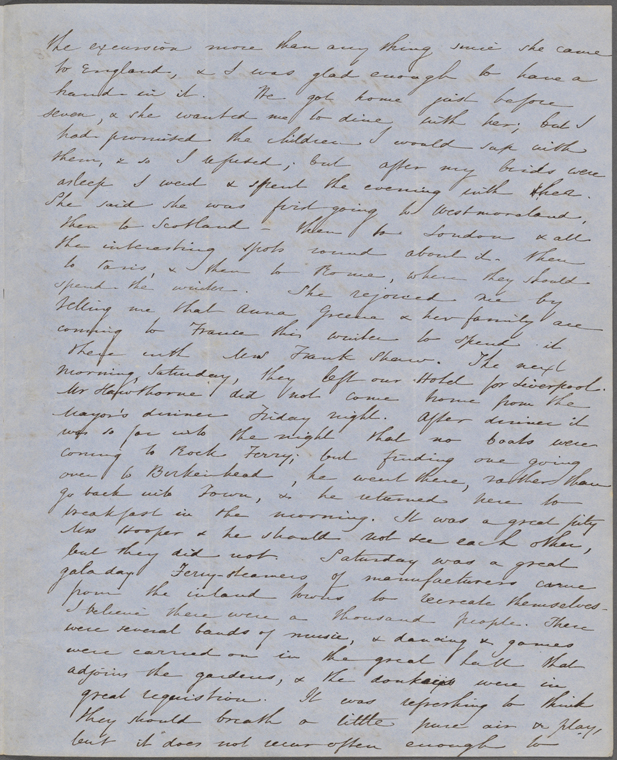 the excursion more than any thing since she came
to England, & I was glad enough to have a
hand in it. We got home just before
seven, & she wanted me to dine with her, but I
had promised the children I would sup with
them, & so I refused; but after my birds were
asleep I went & spent the evening with her.
She said she was first going to Westmoreland,
then to Scotland – then to London & all
the interesting spots round about it – then
to Paris, & then to Rome, where they should
spend the winter. She rejoiced me by
telling me that Anna Greene & her family are
coming to France this winter to spend it
there with Mrs Frank Shaw. The next
morning, Saturday, they left our Hotel for Liverpool.
Mr Hawthorne did not come home from the
Mayor's dinner Friday night. After dinner it
was so far into the night that no boats were
coming to Rock Ferry; but finding one going
over to Birkenhead, he went there, rather than
go back into Town, & he returned here to
breakfast in the morning. It was a great pity
Mrs Hooper & he should not see each other,
but they did not. Saturday was a great
gala day. Ferry-steamers of manufacturers came
from the inland towns to recreate themselves –
I believe there were a thousand people. There
were several bands of music, & dancing & games
were carried on in the great hall that
adjoins the gardens, & the donkeys were in
great requisition. It was refreshing to think
they should breath a little pure air & play,
but it does not recur often enough to